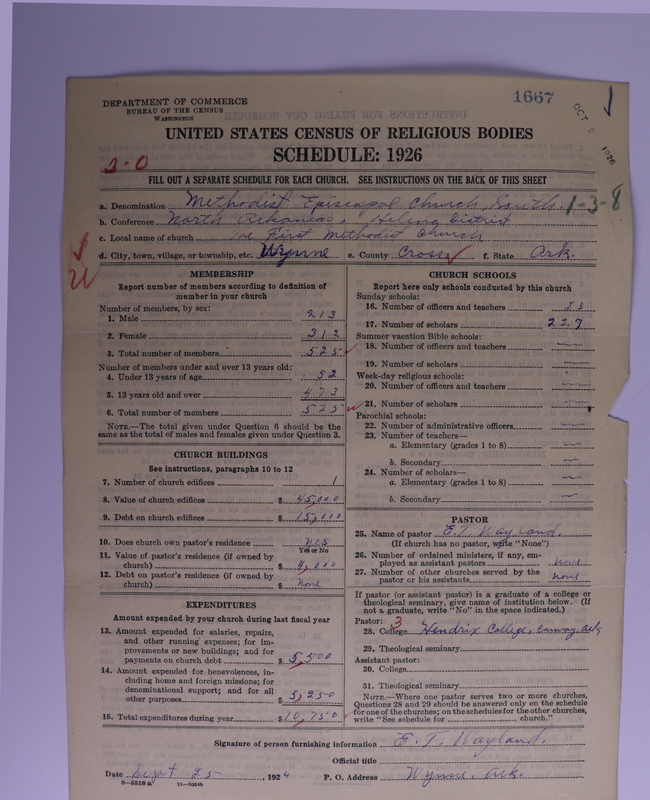 1667
OCT 2 1926
DEPARTMENT OF COMMERCE
BUREAU OF THE CENSUS
WASHINGTON
UNITED STATES CENSUS OF RELIGIOUS BODIES
SCHEDULE: 1926
2-0
FILL OUT A SEPARATE SCHEDULE FOR EACH CHURCH. SEE INSTRUCTIONS ON THE BACK OF THIS SHEET
1-3-8
a. Denomination Methodist Episcopal Church, South.
b. Conference North Arkansas, District
c. Local name of church The First Methodist Church
d. City, town, village, or township, etc. Wynne e. County Cross f. State Ark.
MEMBERSHIP
Report number of members according to definition of
member in your church
Number of members, by sex:
1. Male 213
2. Female 312
3. Total number of members 525
Number of members under and over 13 years old:
4. Under 13 years of age 52
5. 13 years old and over 473
6. Total number of members 525
NOTE.—The total given under Question 6 should be the
same as the total of males and females given under Question 3.
CHURCH BUILDINGS
See instructions, paragraphs 10 to 12
7. Number of church edifices 1
8. Value of church edifices $ 45,000
9. Debt on church edifices $ 15,000
10. Does church own pastor's residence Yes
Yes or No
11. Value of pastor's residence (if owned by
church) $ 4,000
12. Debt on pastor's residence (if owned by
church) $ none
EXPENDITURES
Amount expended by your church during last fiscal year
13. Amount expended for salaries, repairs,
and other running expenses; for im-
provements or new buildings; and for
payments on church debt $ 5,500
14. Amount expended for benevolences, in-
cluding home and foreign missions; for
denominational support; and for all
other purposes $ 5,250
15. Total expenditures during year $ 10,750
CHURCH SCHOOLS
Report here only schools conducted by this church
Sunday schools:
16. Number of officers and teachers 23
17. Number of scholars 227
Summer vacation Bible schools:
18. Number of officers and teachers —
19. Number of scholars —
Week-day religious schools:
20. Number of officers and teachers —
21. Number of scholars —
Parochial schools:
22. Number of administrative officers —
23. Number of teachers—
a. Elementary (grades 1 to 8) —
b. Secondary —
24. Number of scholars—
a. Elementary (grades 1 to 8) —
b. Secondary —
PASTOR
25. Name of pastor E. T. Wayland.
(If church has no pastor, write "None")
26. Number of ordained ministers, if any, em-
ployed as assistant pastors none
27. Number of other churches served by the
pastor or his assistants none
If pastor (or assistant pastor) is a graduate of a college or
theological seminary, give name of institution below. (If
not a graduate, write "No" in the space indicated.)
Pastor: 3
28. College Hendrix College, Conway Ark
29. Theological seminary
Assistant pastor:
30. College
31. Theological seminary
NOTE.—Where one pastor serves two or more churches,
Questions 28 and 29 should be answered only on the schedule
for one of the churches; on the schedules for the other churches,
write "See schedule for church."
Signature of person furnishing information E. T. Wayland.
Official title
Date Sept 25, 1926 P. O. Address Wynne, Ark.
8—5516 a 11—9064b